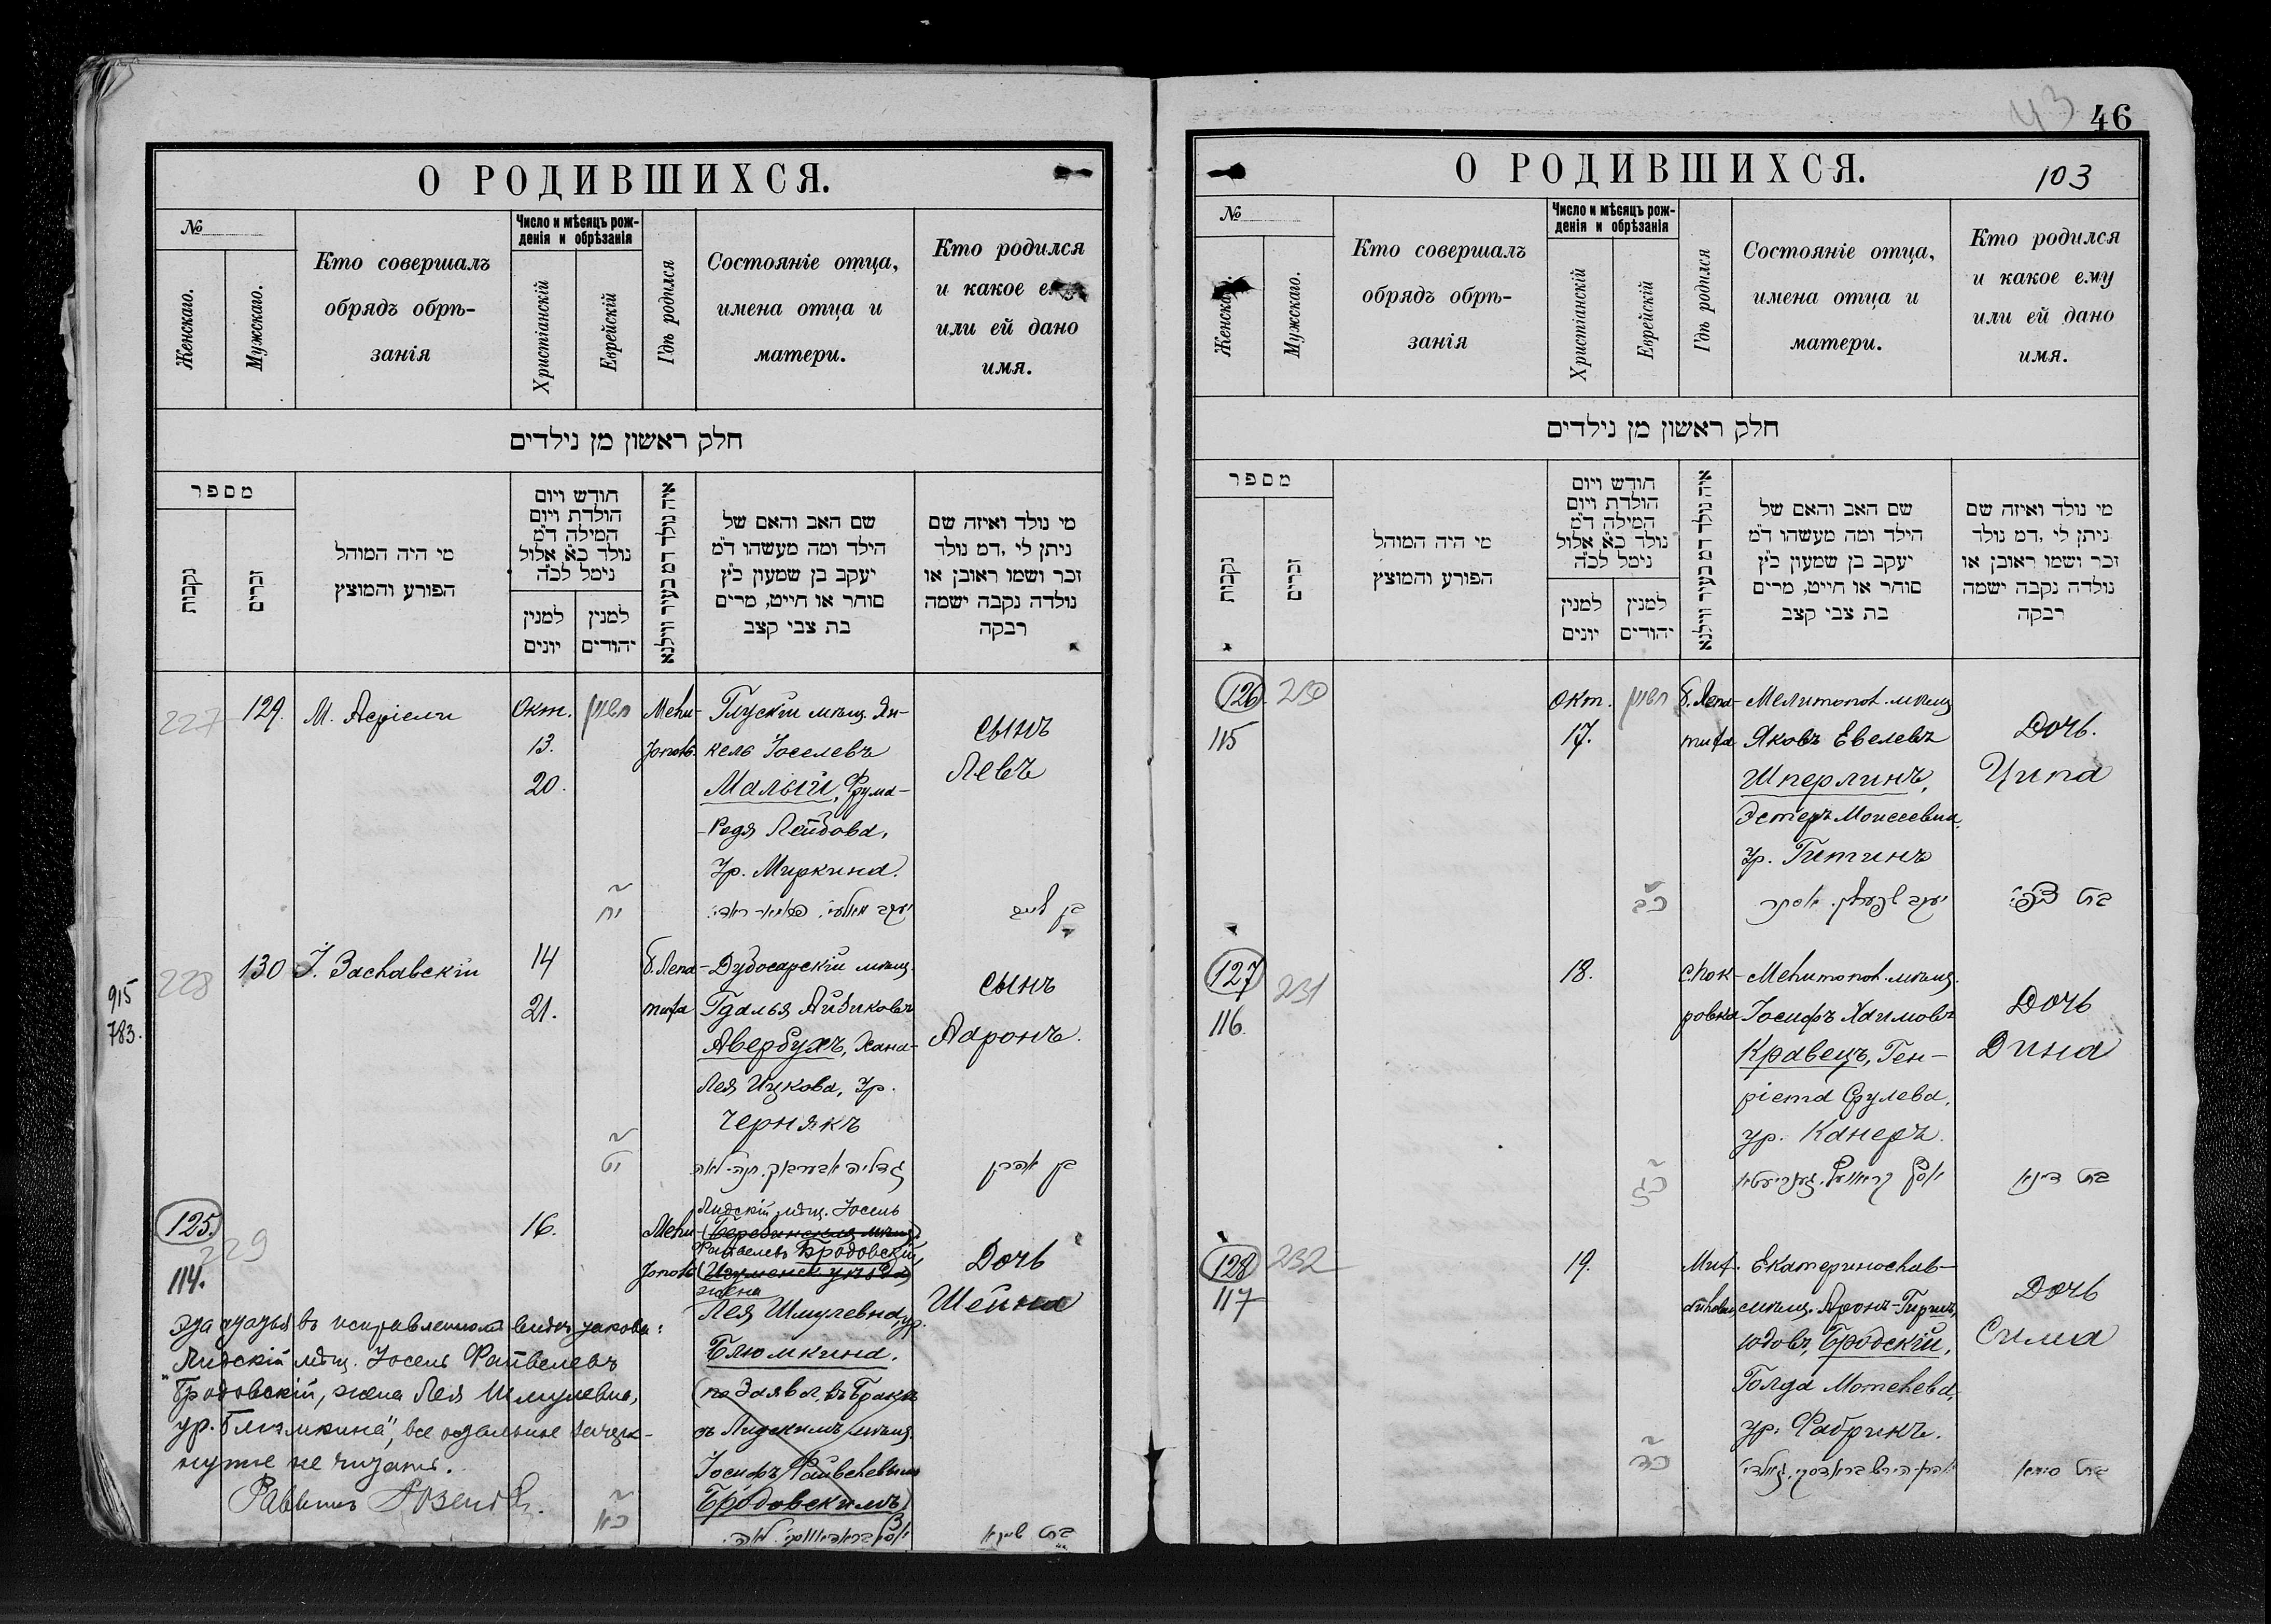 О РОДИВШИХСЯ.
№
Женскаго.
Мужскаго.
Кто совершалъ
обрядъ обрѣ-
занія
Число и мѣсяцъ рож-
денія и обрѣзанія
Христіанскій
Еврейскій
Гдѣ родился
Состояніе отца,
имена отца и
матери.
Кто родился
и какое е
или ей дано
имя.
חלק ראשון מן נילדים
מספר
נקבות
זכרים
מי היה המוהל
הפורע והמוצץ
חודש ויום
הולדת ויום
המילה ד״מ
נולד כ״א אלול
נימל לכ״ה
למנין
יונים
למנין
יהודים
איה נולד דמ בעיר ווילנא
שם האב והאם של
הילד ומה מעשהו ד״מ
יעקב בן שמעון כ״ץ
סוחר או חייט, מרים
בת צבי קצב
מי נולד ואיזה שם
ניתן לי, דמ נולד
זכר ושמו ראובן או
נולדה נקבה ישמה
רבקה
227
129.
М. Асріели
Окт.
13.
20.
חשון
יח
Мели-
топ.
Глускій мѣщ. Ян-
кель Іоселевъ
Малый, Фрума-
-Родя Лейбова,
ур. Миркина.
сынъ
Левъ
915
783.
228
130
І. Заславскій
14
21.
יט
б. Лепа-
тиха
Дубосарскій мѣщ.
Гдалья Айзиковъ
Авербухъ, Хана-
Лея Ицкова, ур.
Чернякъ
сынъ
Ааронъ.
בן אהרן
125.
229
114.
16.
כא
Мели-
топ.
Лидскій мѣщ. Іосель
Файвелевъ Бродовскій,
жена
Лея Шмулевна, ур.
Блюмкина.
(по заявл. въ бракѣ
съ Лидскимъ мѣщ.
Іосифъ Файвелевымъ
Бродовскимъ)
Дочь
Шейна
בת שיינא
въ исправленномъ видѣ такова:
"Лидскій мѣщ. Іосель Файвелевъ
Бродовскій, жена Лея Шмулевна,
ур. Блюмкина", все остальное зачерк-
нутое не читать.
Раввинъ
43
46
О РОДИВШИХСЯ.
103
№
Женска
Мужскаго.
Кто совершалъ
обрядъ обрѣ-
занія
Число и мѣсяцъ рож-
денія и обрѣзанія
Христіанскій
Еврейскій
Гдѣ родился
Состояніе отца,
имена отца и
матери.
Кто родился
и какое ему
или ей дано
имя.
חלק ראשון מן נילדים
מספר
נקבות
זכרים
מי היה המוהל
הפורע והמוצץ
חודש ויום
הולדת ויום
המילה ד״מ
נולד כ״א אלול
נימל לכ״ה
למנין
יונים
למנין
יהודים
איה נולד דמ בעיר ווילנא
שם האב והאם של
הילד ומה מעשהו ד״מ
יעקב בן שמעון כ״ץ
סוחר או חייט, מרים
בת צבי קצב
מי נולד ואיזה שם
ניתן לי, דמ נולד
זכר ושמו ראובן או
נולדה נקבה ישמה
רבקה
126.
230
115
Окт.
17.
חשון
כב
б. Лепа-
тиха
Мелитопол. мѣщ
Яковъ Евелевъ
Шперлинъ,
Эстеръ Моисеевна,
ур. Гитинъ
Дочь.
Ципа
127
231
116.
18.
כג
Мелитопол. мѣщ.
Іосифъ Хаимовъ
Кравецъ, Ген-
ріета Срулева,
ур. Канеръ.
Дочь
Дина
בת דינא
128
232
117
19.
כד
Мих.
Екатеринослав-
мѣщ. Аронъ-Гиршъ
Юдовъ, Бродскій,
Голда Мотелева,
ур. Фабрикъ.
Дочь
Сима
בת סימא